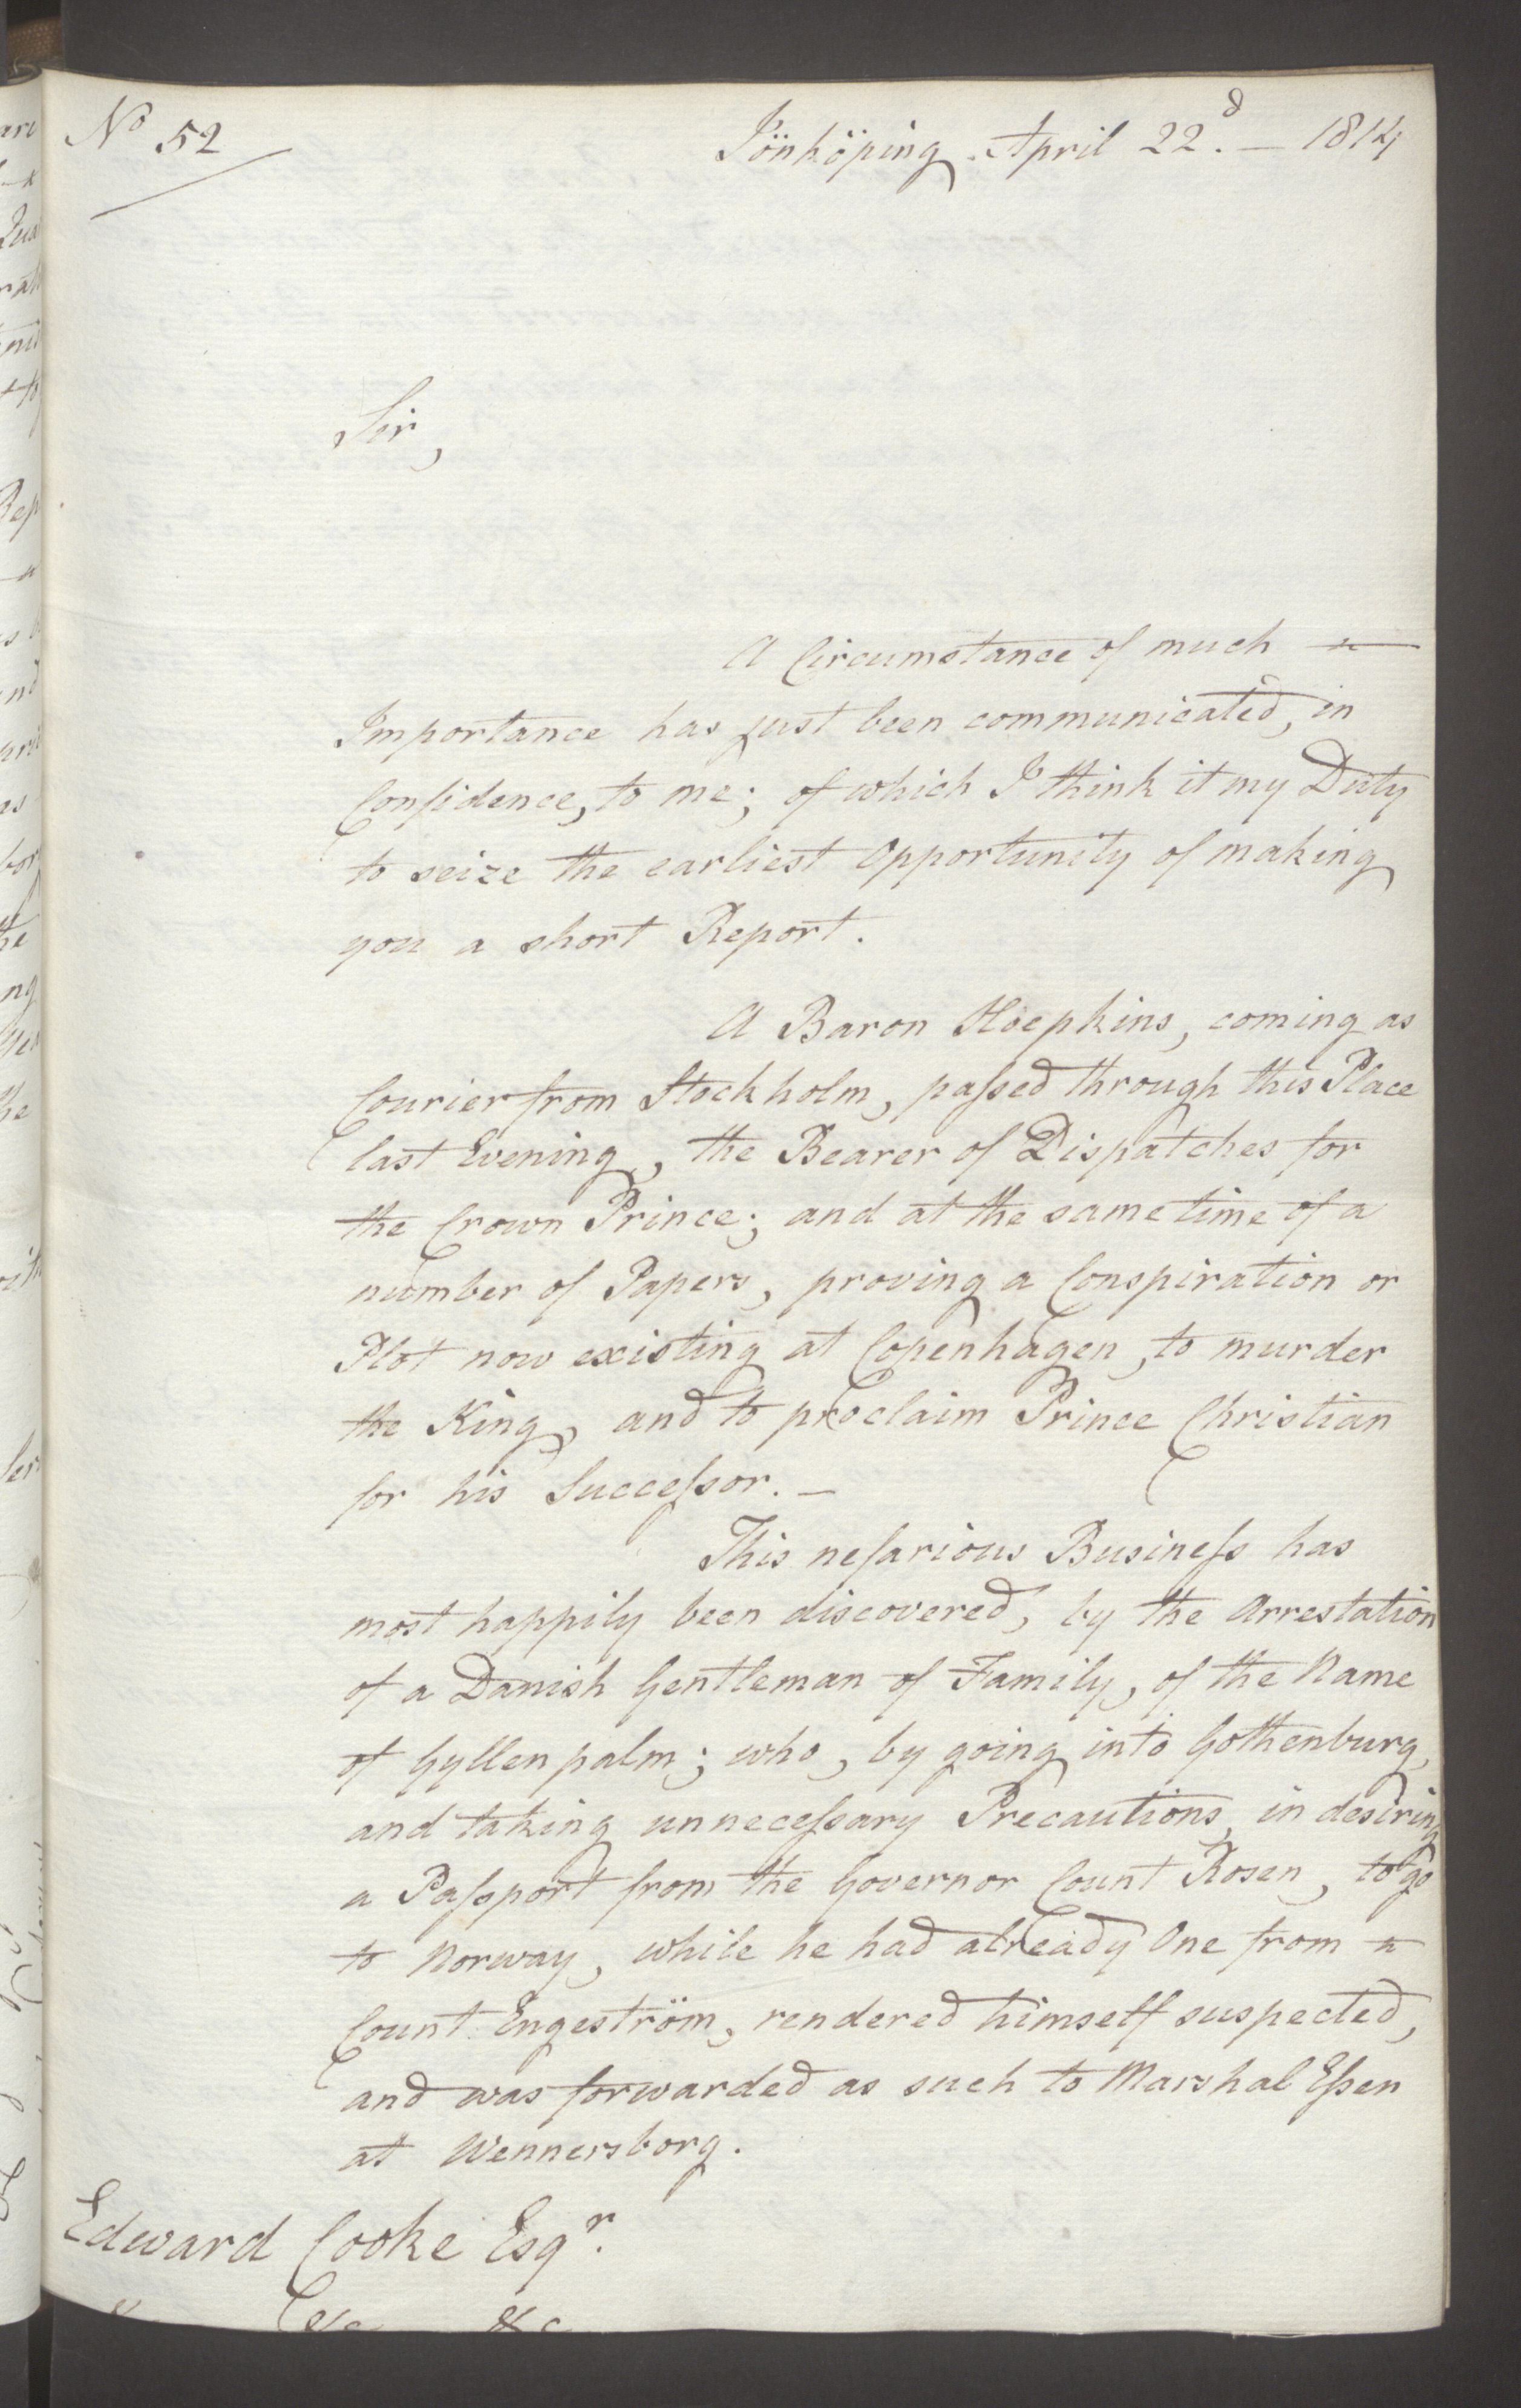 No 52
Jönköping April 22d. — 1814
Sir,
A Circumstance of much
Importance has just been communicated, in
Confidence, to me; of which I think it my Duty
to seize the earliest Opportunity of making
you a short Report.
A Baron Hoepkins, coming as
Courier from Stockholm, paſsed through this Place
last Evening, the Bearer of Dispatches for
the Crown Prince; and at the same time of a
number of Papers, proving a Conspiration or
Plot now existing at Copenhagen, to murder
the King, and to proclaim Prince Christian
for his Succeſsor. —
This nefarious Busineſs has
most happily been discovered, by the Arrestation
of a Danish Gentleman of Family, of the Name
of Gyllenpalm; who, by going into Gothenburg,
and taking unneceſsary Precautions, in desiring
a Paſsport from the Governor Count Rosen, to go
to Norway, while he had already One from
Count Engeström, rendered himself suspected,
and was forwarded as such to Marshal Eſsen
at Wennersborg.
Edward Cooke Esqr.
&c &c